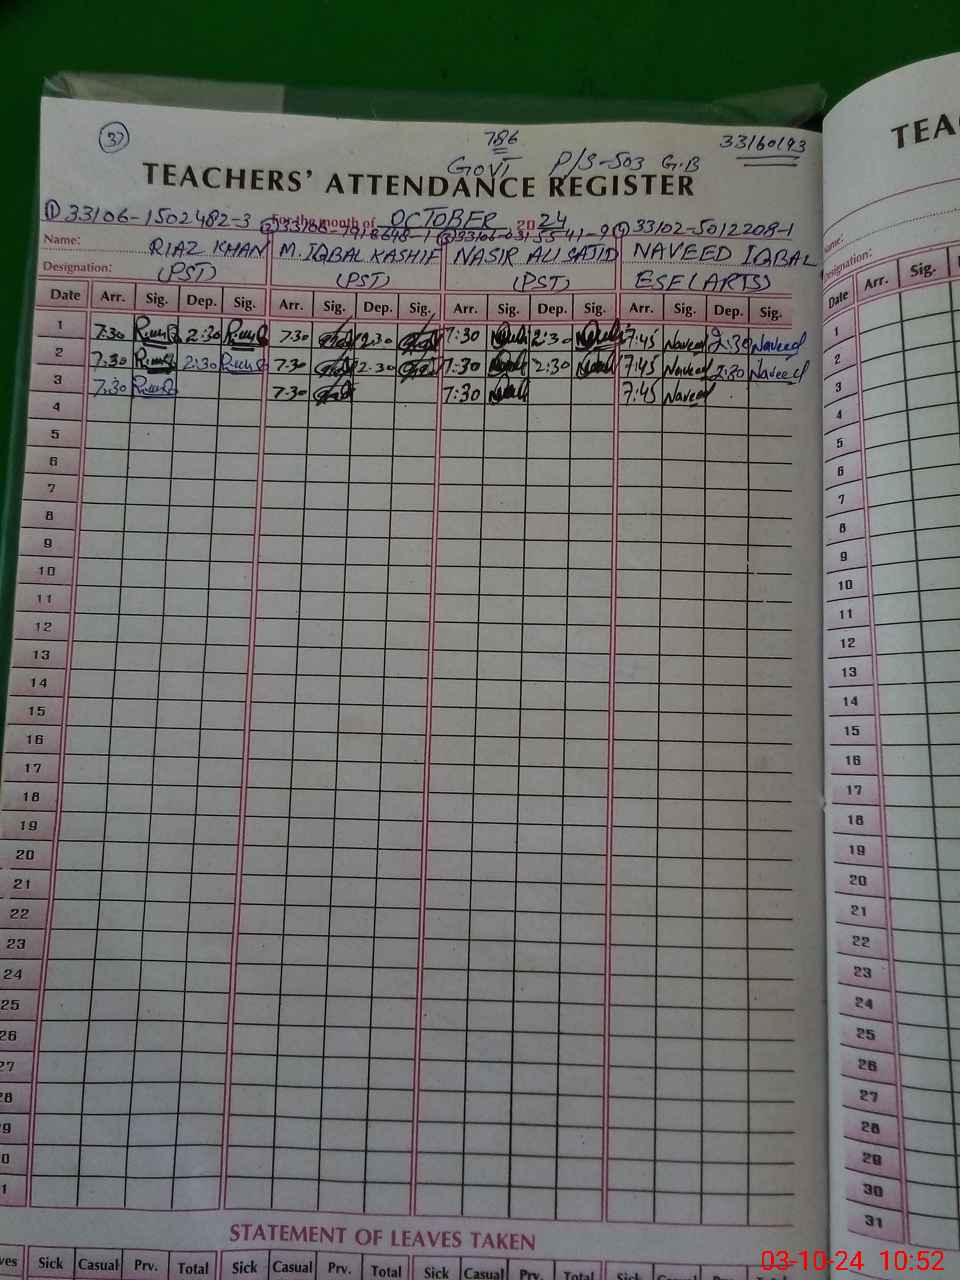 37
786
33160193
GOVT P/S-503 G.B
TEACHERS' ATTENDANCE REGISTER
For the month of OCTOBER 2024
① 33106-1502482-3 ④ 33102-5012208-1
Name: RIAZ KHAN M. IQBAL KASHIF NASIR ALI SAJID NAVEED IQBAL
Designation: (PST) (PST) (PST) ESE(ARTS)
Date Arr. Sig. Dep. Sig. Arr. Sig. Dep. Sig. Arr. Sig. Dep. Sig. Arr. Sig. Dep. Sig.
1 7:30 2:30 7:30 2:30 7:30 2:30 7:45 Naveed 2:30 Naveed
2 7:30 2:30 7:30 2:30 7:30 2:30 7:45 Naveed 2:30 Naveed
3 7:30 7:30 7:30 7:45 Naveed
4
5
6
7
8
9
10
11
12
13
14
15
16
17
18
19
20
21
22
23
24
25
26
27
28
9
0
1
STATEMENT OF LEAVES TAKEN
ves Sick Casual Prv. Total Sick Casual Prv. Total Sick Casual Prv. Total Sick Casual Prv.
TEA
ame:
esignation:
Date Arr. Sig.
1
2
3
4
5
6
7
8
9
10
11
12
13
14
15
16
17
18
19
20
21
22
23
24
25
26
27
28
29
30
31
03-10-24 10:52